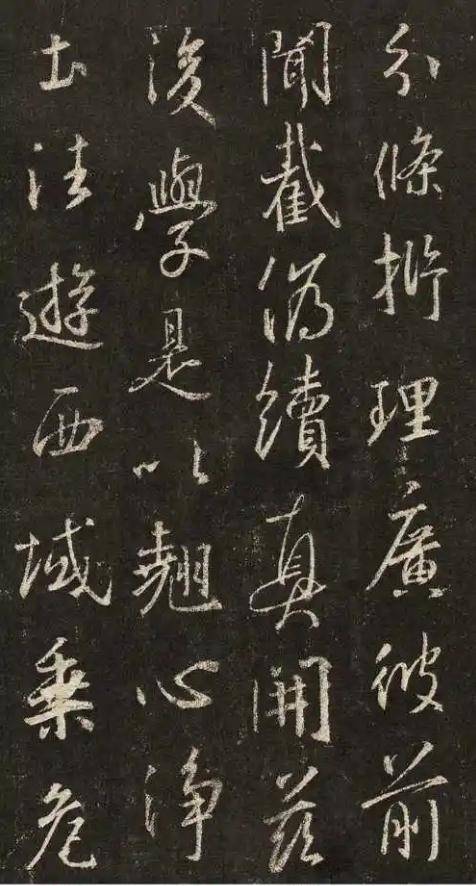 分條析理廣彼前
聞截偽續真開茲
後學是以翹心淨
土法遊西域乘危